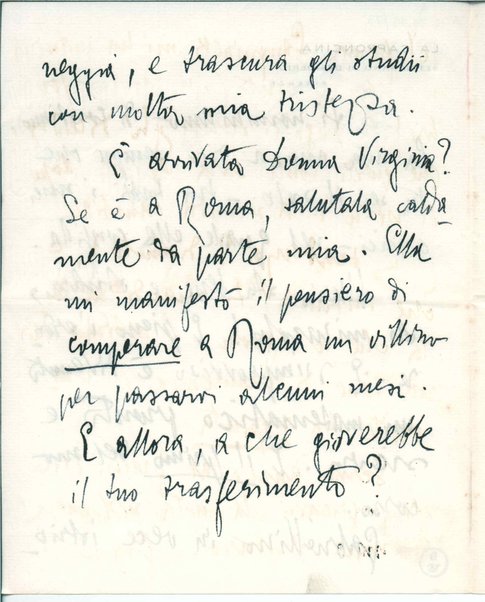 neggia, e trascura gli studii
con molta mia tristezza.
È arrivata Donna Virginia?
Se è a Roma, salutala calda-
mente da parte mia. Ella
mi manifestò il pensiero di
comperare a Roma un villino
per passarvi alcuni mesi.
E allora, a che gioverebbe
il tuo trasferimento?